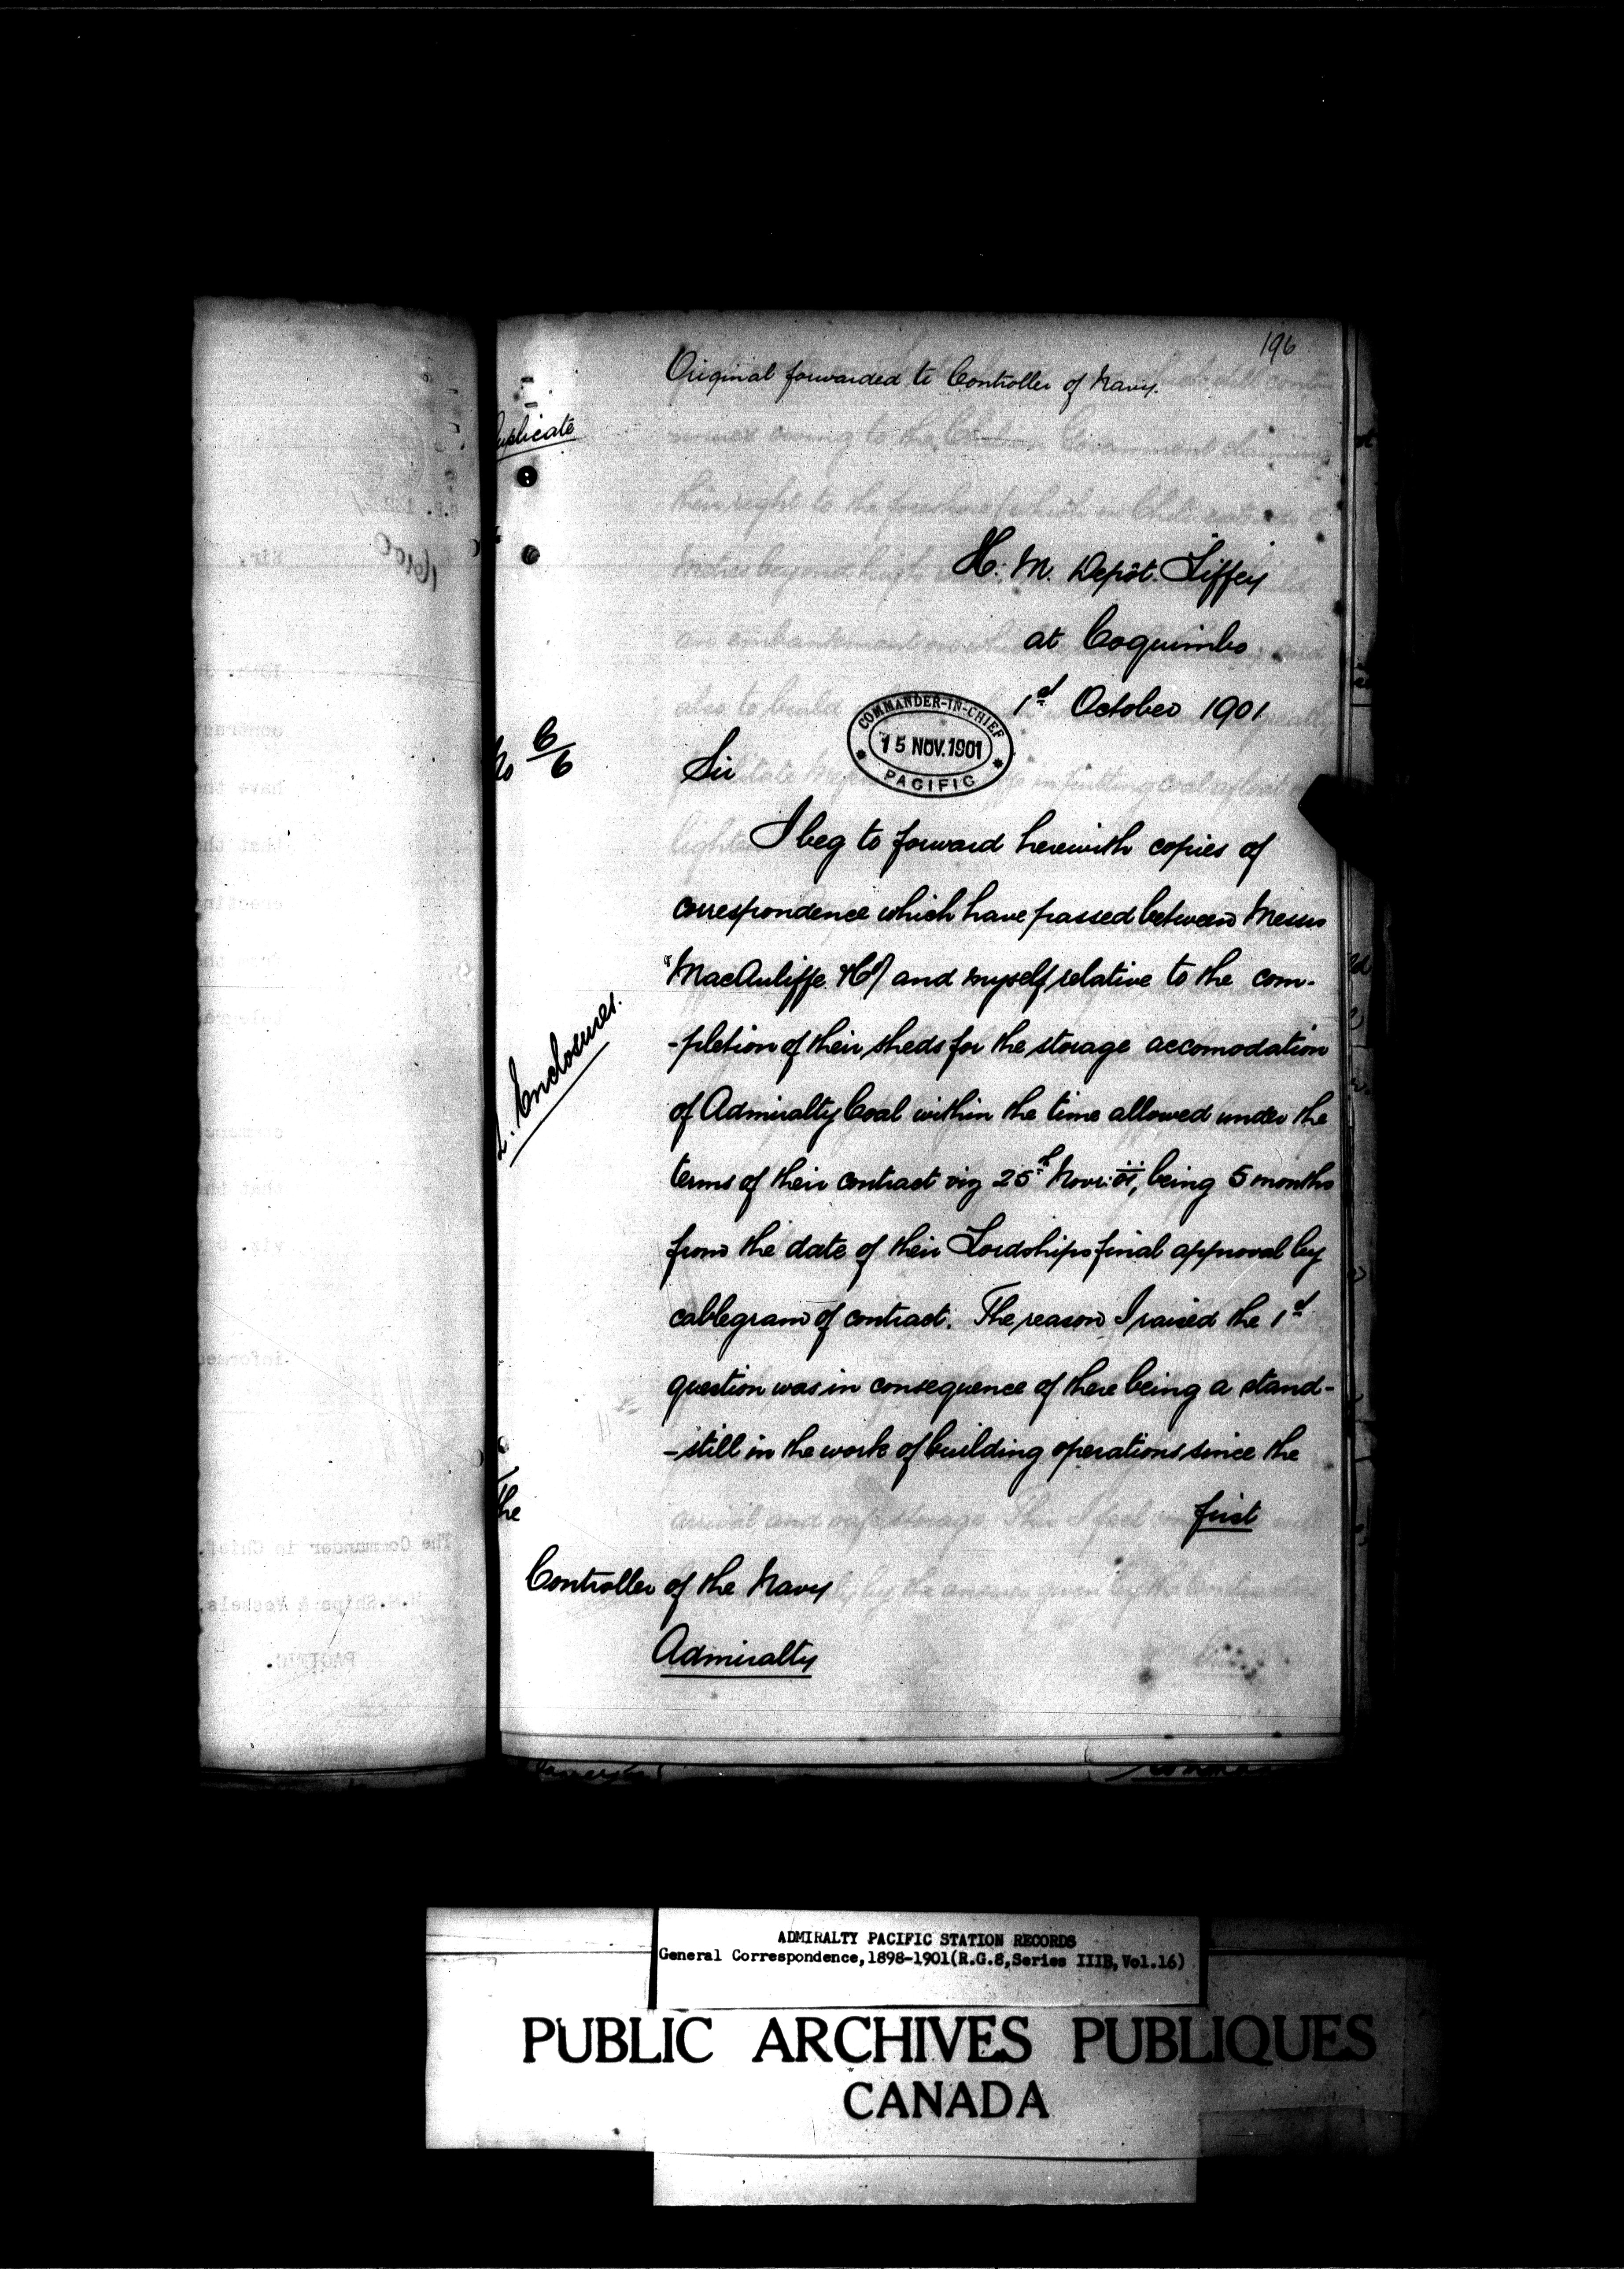 196
Original forwarded to Controller of Navy.
Duplicate
H. M. Depôt. Liffey
at Coquimbo
1st October 1901
COMMANDER-IN-CHIEF
15 NOV. 1901
PACIFIC
No 6/6
Sir
I beg to forward herewith copies of
correspondence which have passed between Messrs
MacAuliffe & Co and myself relative to the com-
-pletion of their sheds for the storage accomodation
2. Enclosures.
of Admiralty Coal within the time allowed under the
terms of their contract viz 25th Novr: 01, being 5 months
from the date of their Lordships final approval by
cablegram of contract. The reason I raised the 1st
question was in consequence of there being a stand-
-still in the work of building operations since the
first
The
Controller of the Navy
Admiralty
ADMIRALTY PACIFIC STATION RECORDS
General Correspondence, 1898-1901 (R.G.8, Series IIIB, Vol.16)
PUBLIC ARCHIVES PUBLIQUES
CANADA